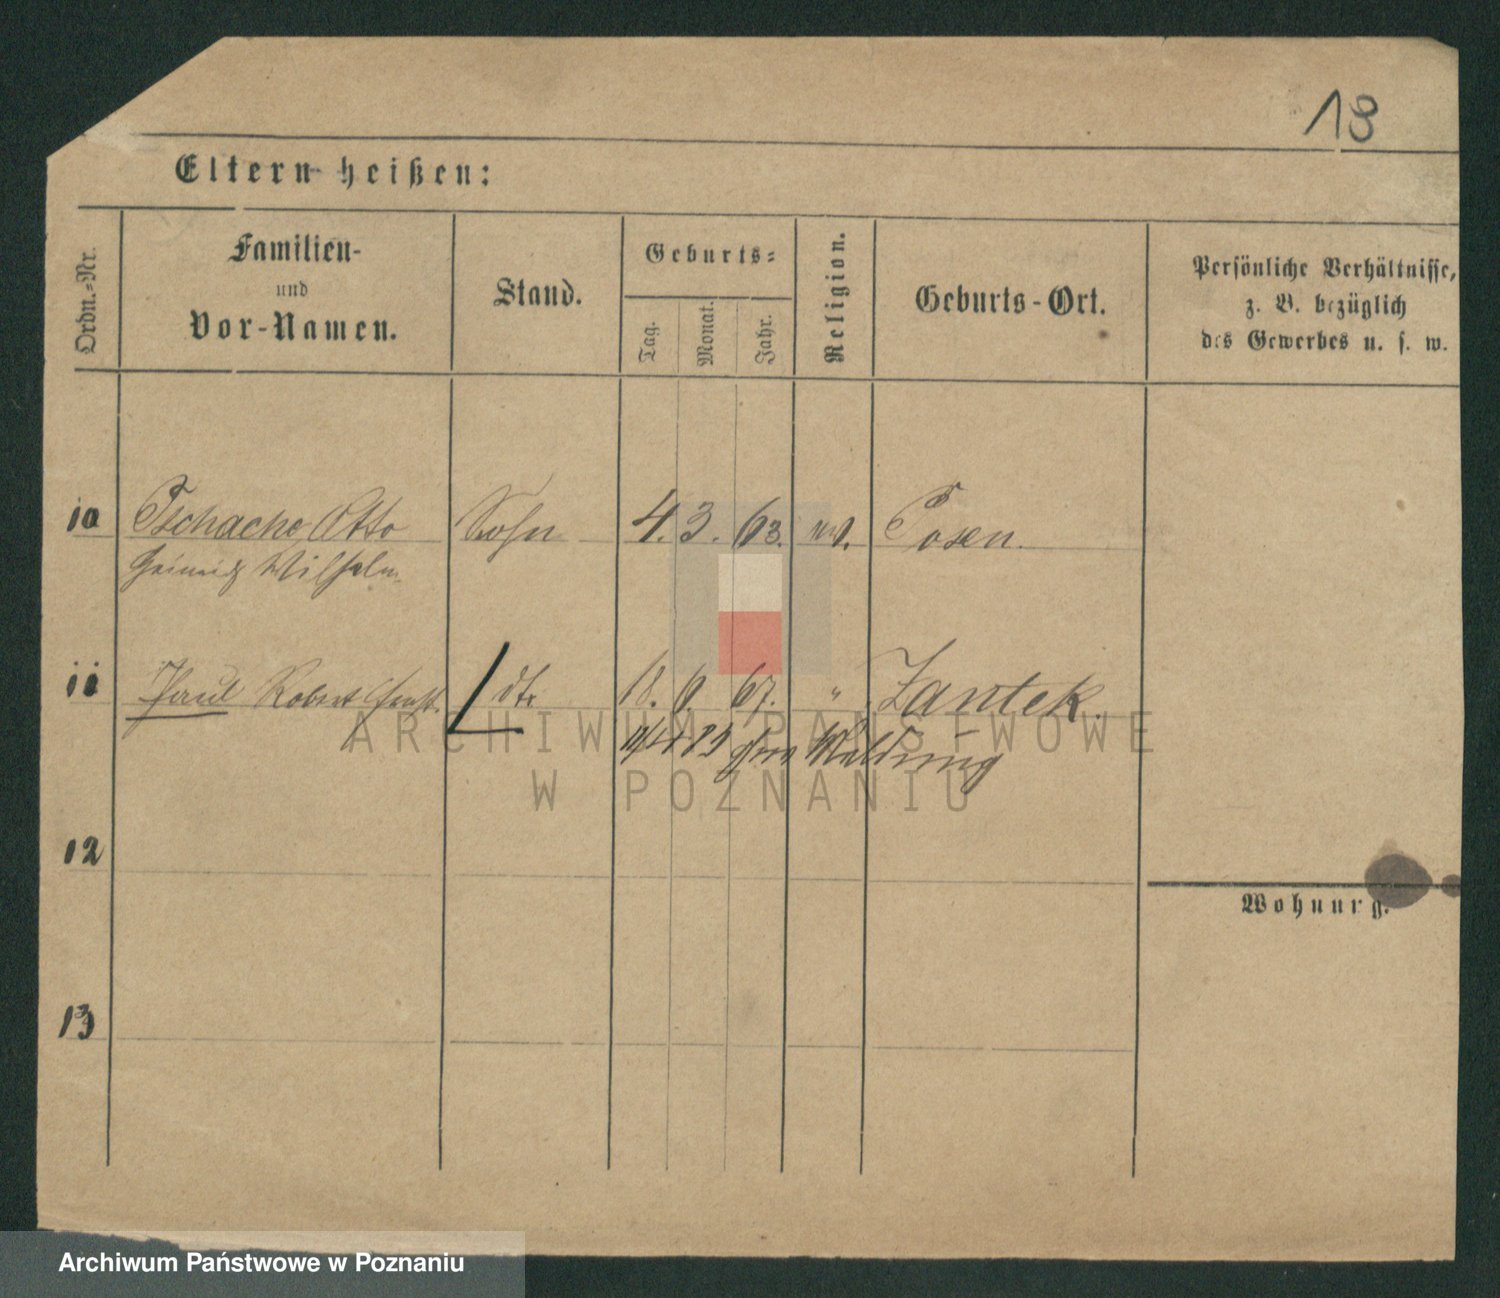 18
Eltern heißen:
Ordn.-Nr.
Familien-
und
Vor-Namen.
Stand.
Geburts-
Tag.
Monat.
Jahr.
Religion.
Geburts-Ort.
Persönliche Verhältnisse,
z. B. bezüglich
des Gewerbes u. s. w.
10 Tschache Otto Sohn 4. 3. 63. Posen.
Heinrich Wilhelm
11 Paul Robert Ernst. dto 18. 67. " Zantek.
89 Meldung
ARCHIWUM PAŃSTWOWE
W POZNANIU
12
Wohnung.
13
Archiwum Państwowe w Poznaniu